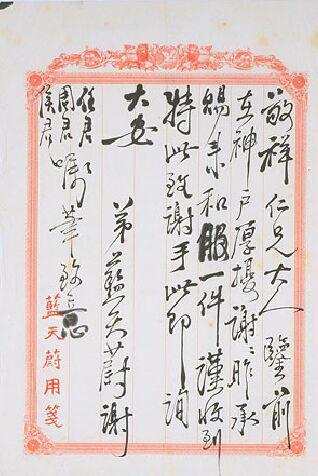 敬祥仁兄大人鑒前
在神戸厚擾謝謝昨承
賜來和服一件謹收到
特此致謝手此即詢
大安
弟藍天蔚謝
任君
周君
侯君
囑筆致意
藍天蔚用箋